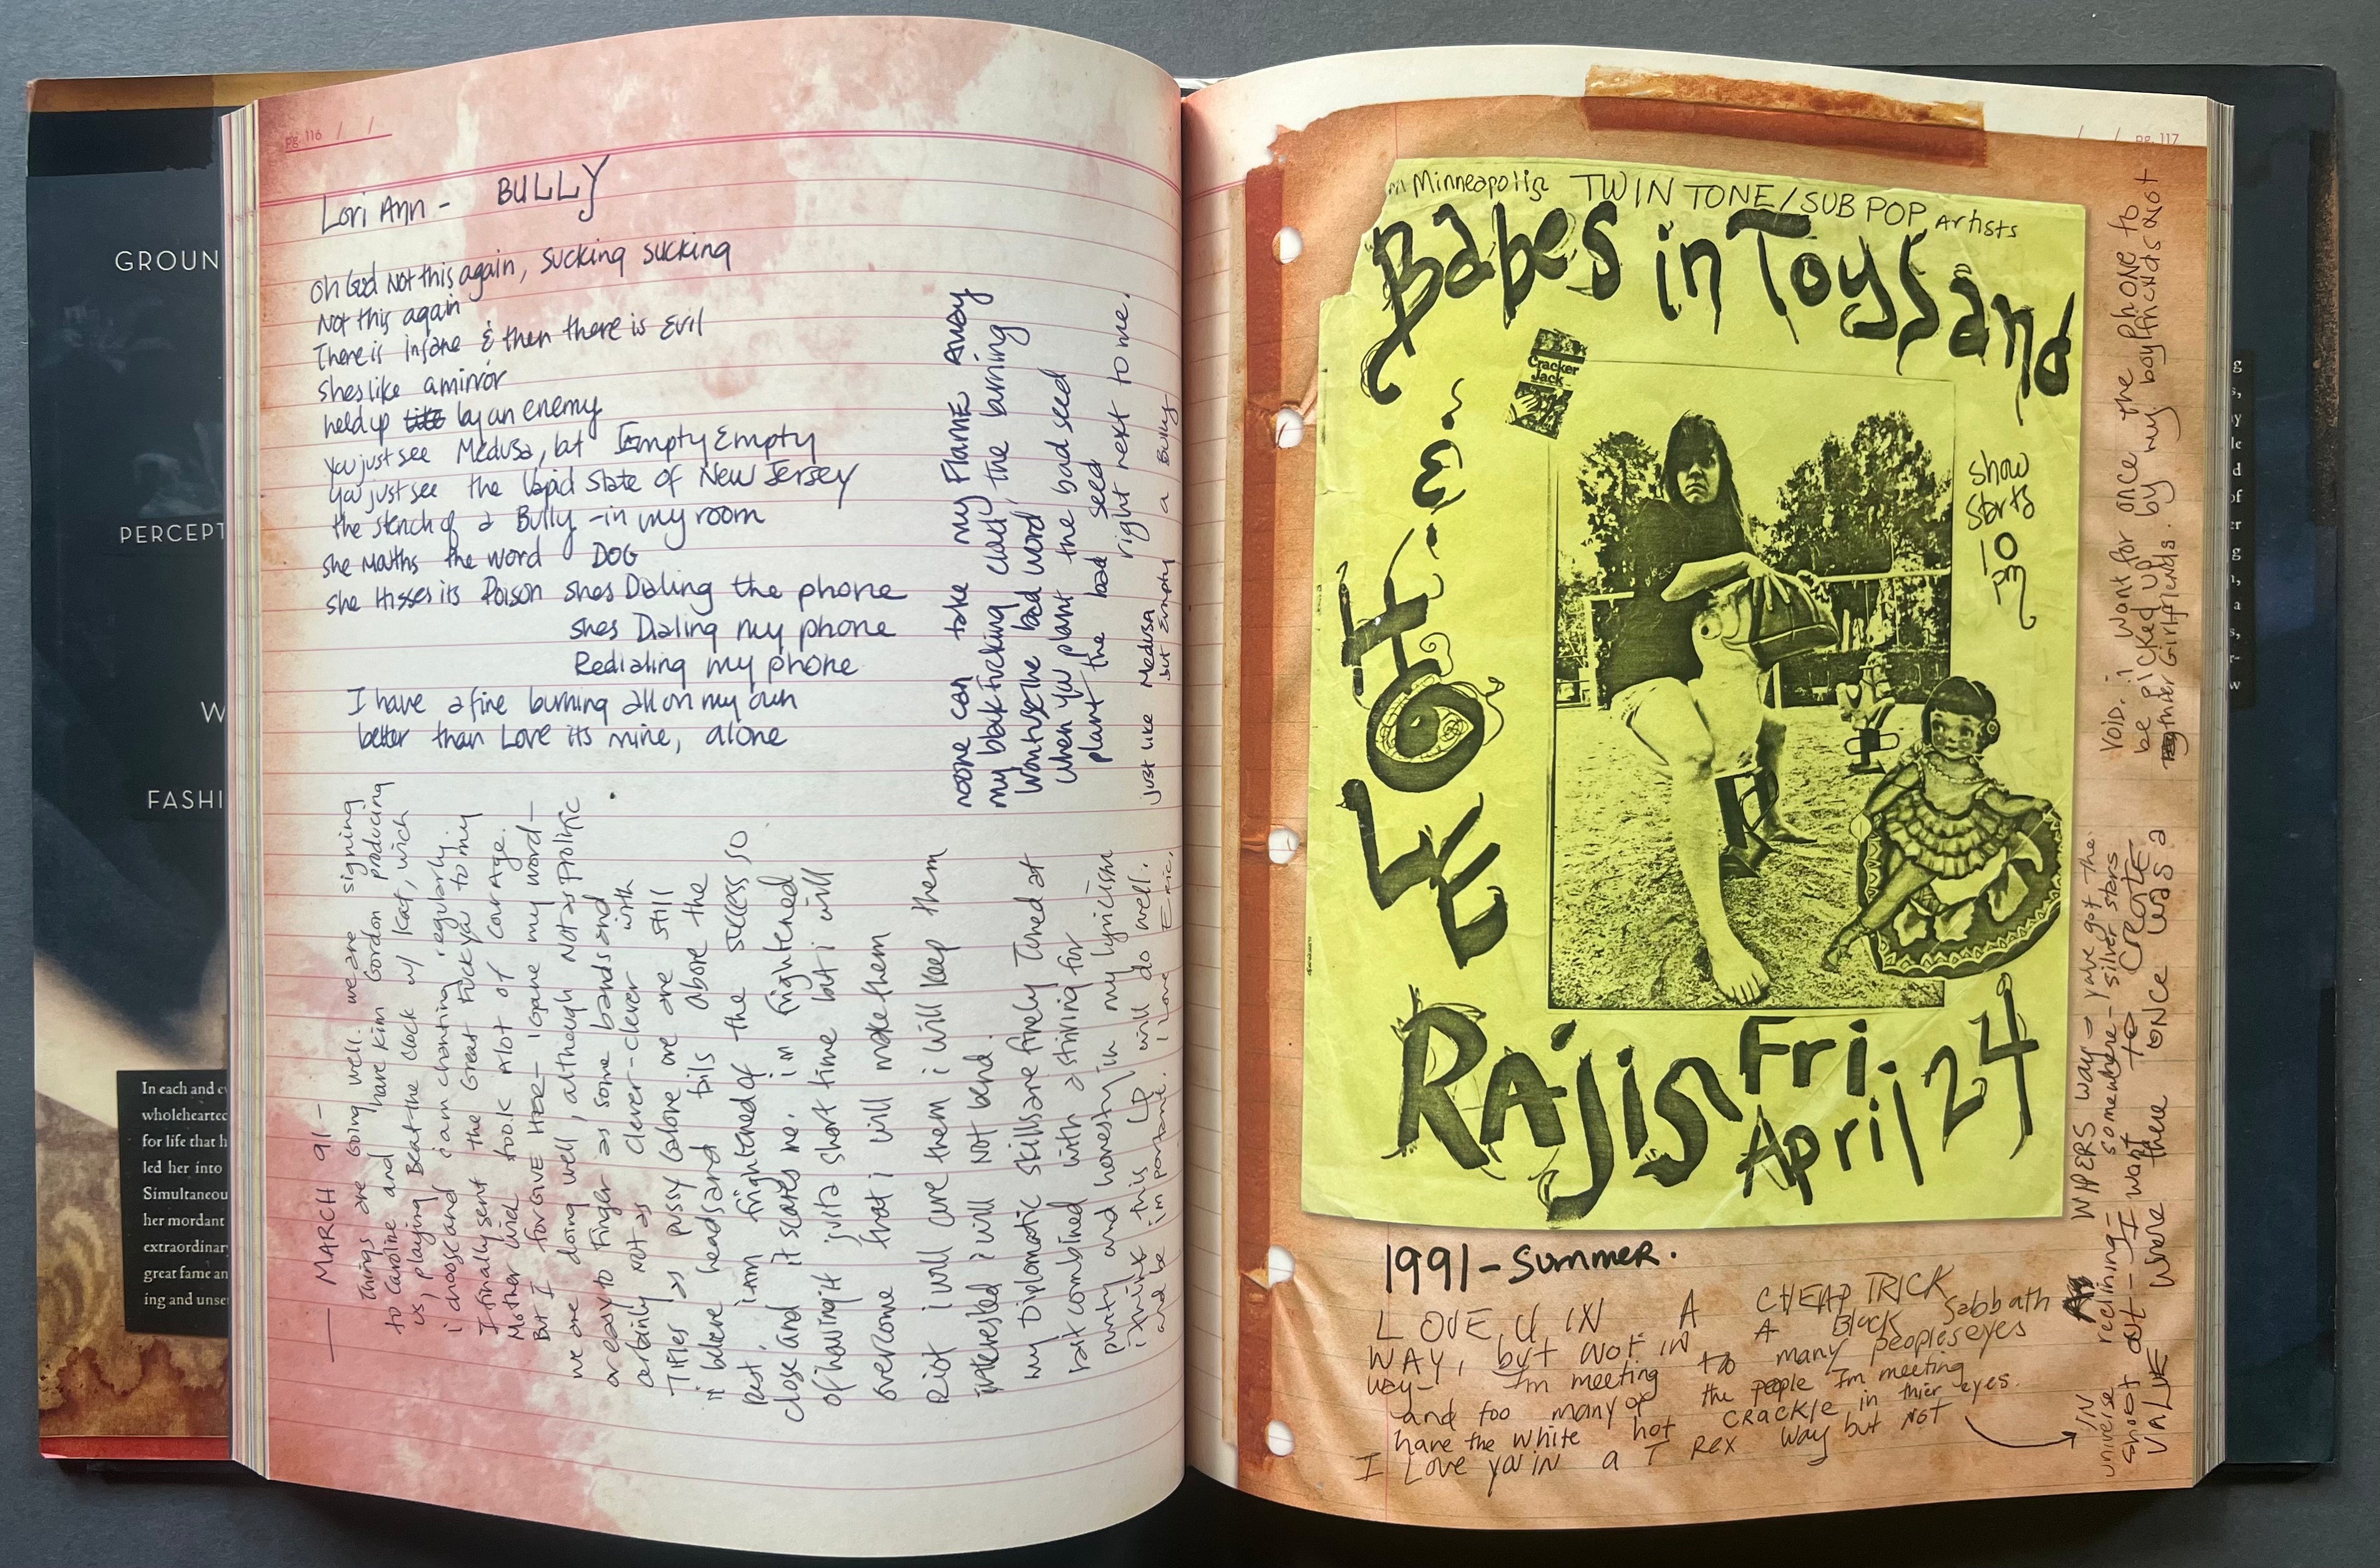 pg. 116 / /
Lori Ann - BULLY
Oh God Not this again, sucking sucking
Not this again
There is insane & then there is Evil
shes like a mirror
held up by an enemy
you just see Medusa, but Empty Empty
you just see the Vapid State of New Jersey
the stench of a Bully - in my room
she Mouths the word DOG
she Hisses its Poison shes Dialing the phone
shes Dialing my phone
Redialing my phone
I have a fire burning all on my own
better than Love its mine, alone
noone can take my FLAME AWAY
my black fucking cloud, the burning
Wont use the bad word
When you plant the bad seed
plant the bad seed
right next to me.
just like Medusa a Bully
but Empty
— MARCH 91 —
Things are going well. we are signing
to Caroline and have Kim Gordon producing
us, playing Beat the Clock w/ Kat, wich
i choose and i am chanting regularly.
I finally sent the Great Fuck you to my
Mother wich took Alot of Courage.
But I forGIVE HER - I gave my word -
we are doing well, although Not as Prolific
or easy to Finger as some bands and
certainly Not as clever-clever with
Titles as pussy Galore we are still
i believe heads and tails above the
rest. i am frightened of the success so
close and it scares me. i'm frightened
of having it just a short time but i will
overcome that i will make them
Riot i will cure them i will keep them
interested i will Not bend.
my Diplomatic skills are finely Tuned at
last combined with a striving for
purity and honesty in my lyricism
i think this LP will do well.
and be important. I Love Eric.
/ / pg. 117
Minneapolis TWIN TONE/SUB POP Artists
Babes in Toyland
Cracker
Jack
HOLE
show
starts
10
pm
RAJIS Fri
April 24
1991 - Summer.
LOVE U IN A CHEAP TRICK
WAY, but not in A Black Sabbath
way - Im meeting too many peoples eyes
and too many of the people Im meeting
have the white hot crackle in thier eyes.
I Love you in a T Rex way but Not
IN WIPERS way - youve got the
universe reclining - somewhere - silver stars
shoot out - I want to Create
VALUE Were there once was a
Void. i want for once the phone to
be picked up by my boyfriends Not
thier Girlfriends.
GROUN
PERCEPT
W
FASHI
In each and e
wholehearted
for life that h
led her into
Simultaneou
her mordant
extraordinar
great fame an
ing and unse